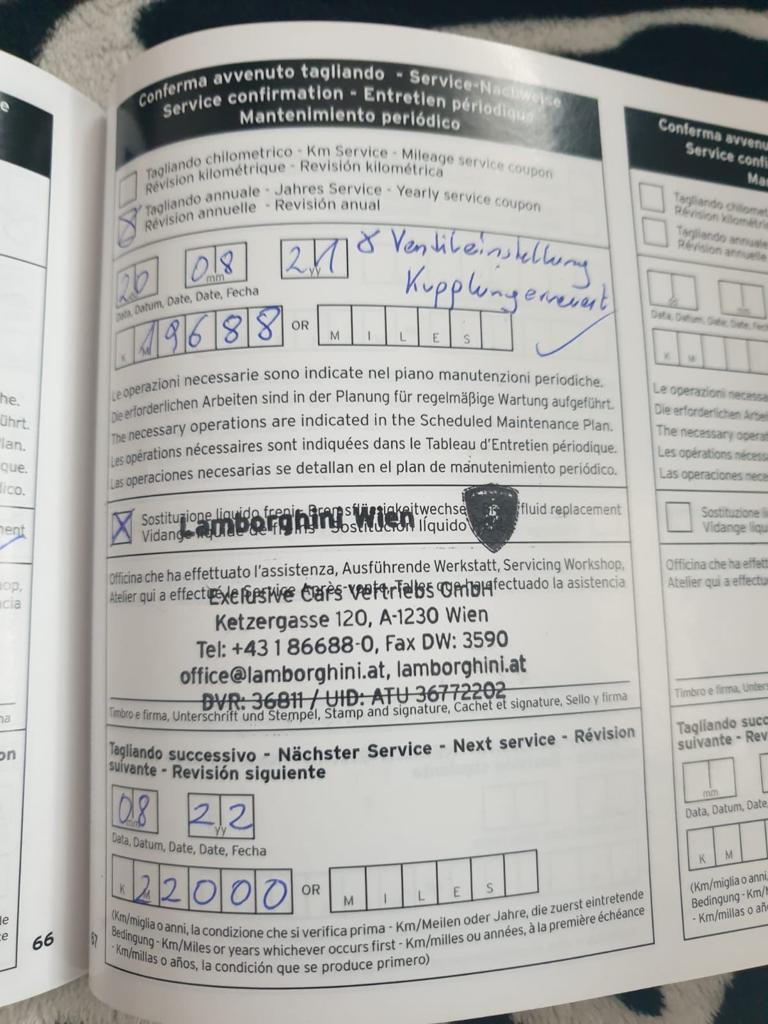 Conferma avvenuto tagliando - Service-Nachweise
Service confirmation - Entretien périodique
Mantenimiento periódico
Tagliando chilometrico - Km Service - Mileage service coupon
Révision kilométrique - Revisión kilométrica
Tagliando annuale - Jahres Service - Yearly service coupon
Révision annuelle - Revisión anual
20 08 21 Ventileinstellung
mm yy
Kupplung erneuert
Data, Datum, Date, Date, Fecha
K M 19688 OR M I L E S
Le operazioni necessarie sono indicate nel piano manutenzioni periodiche.
Die erforderlichen Arbeiten sind in der Planung für regelmäßige Wartung aufgeführt.
The necessary operations are indicated in the Scheduled Maintenance Plan.
Les opérations nécessaires sont indiquées dans le Tableau d'Entretien périodique.
Las operaciones necesarias se detallan en el plan de manutenimiento periódico.
X Sostituzione liquido freni - Bremsflüssigkeitwechsel fluid replacement
Lamborghini Wien
Vidange liquide de freins - Sostitución líquido
Officina che ha effettuato l'assistenza, Ausführende Werkstatt, Servicing Workshop,
Atelier qui a effectué le Service Après-vente, Taller que ha efectuado la asistencia
Exclusive Cars Vertriebs GmbH
Ketzergasse 120, A-1230 Wien
Tel: +43 1 86688-0, Fax DW: 3590
office@lamborghini.at, lamborghini.at
DVR: 36811 / UID: ATU 36772202
Timbro e firma, Unterschrift und Stempel, Stamp and signature, Cachet et signature, Sello y firma
Tagliando successivo - Nächster Service - Next service - Révision
suivante - Revisión siguiente
08 22
mm yy
Data, Datum, Date, Date, Fecha
K M 22000 OR M I L E S
(Km/miglia o anni, la condizione che si verifica prima - Km/Meilen oder Jahre, die zuerst eintretende
Bedingung - Km/Miles or years whichever occurs first - Km/milles ou années, à la première échéance
- Km/millas o años, la condición que se produce primero)
66
67
Conferma avvenu
Service confi
Ma
Tagliando chilomet
Révision kilométri
Tagliando annuale
Révision annuelle
mm
Data, Datum, Date
K M
Le operazioni necessa
Die erforderlichen Arbe
The necessary operat
Les opérations nécess
Las operaciones nece
Sostituzione li
Vidange liquid
Officina che ha effett
Atelier qui a effectu
Timbro e firma, Unters
Tagliando succ
suivante - Rev
mm
Data, Datum, Date
K M
(Km/miglia o anni
Bedingung - Km/
- Km/millas o añ